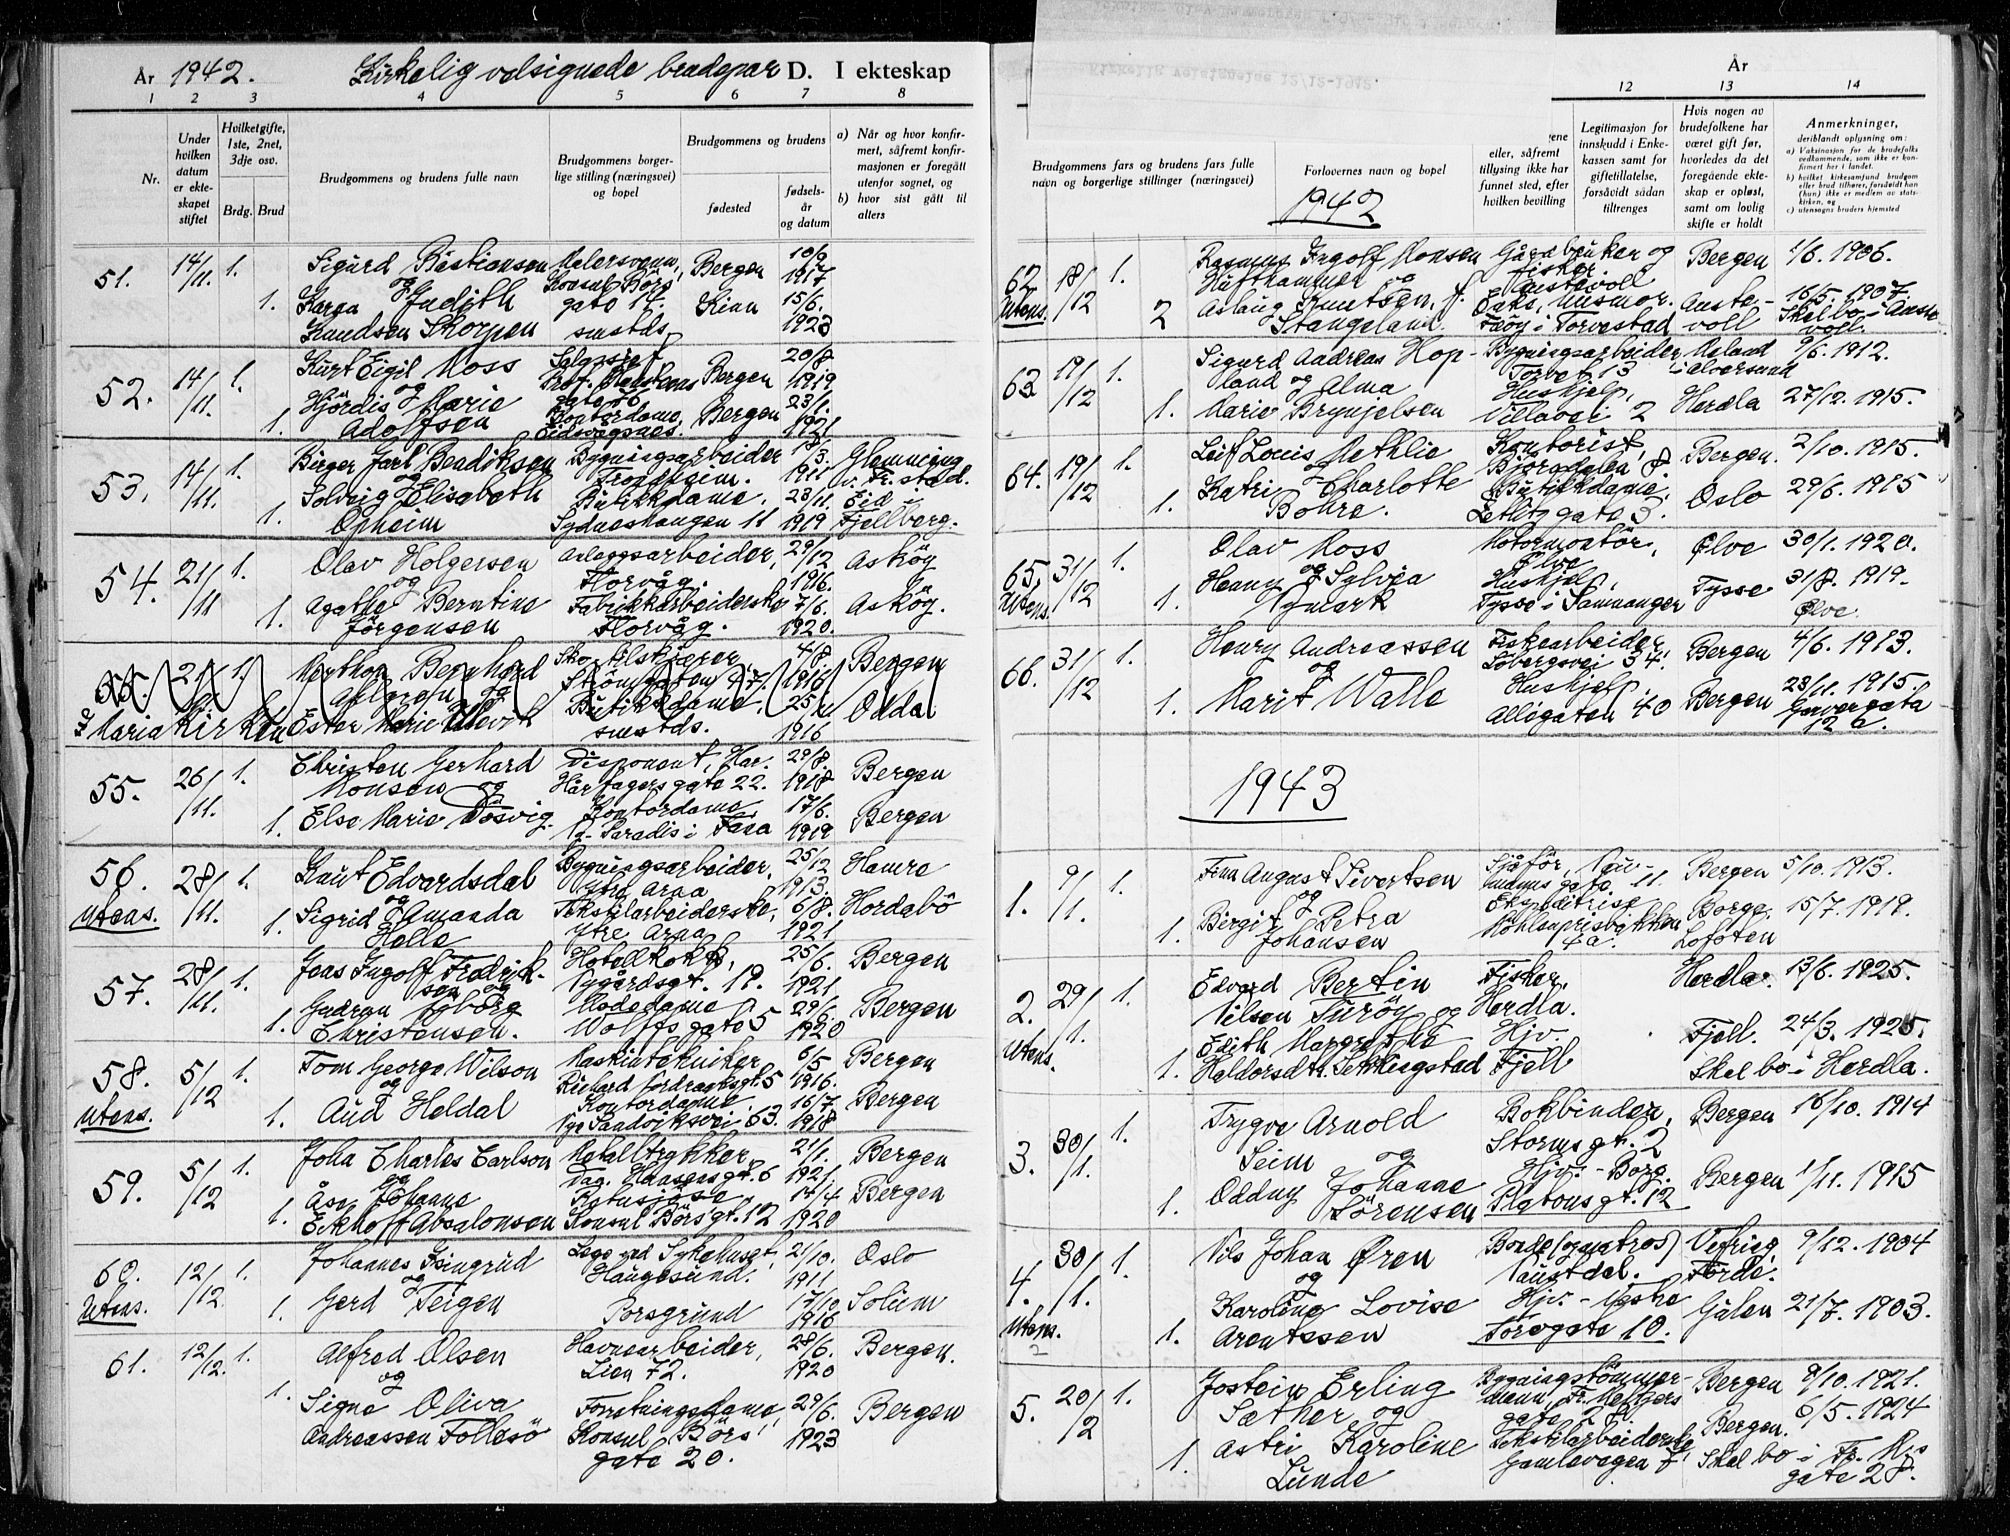 År 1942. Kirkelig velsignede brudepar D. I ekteskap
1 2 3 4 5 6 7 8
Nr.
Under hvilken datum er ekteskapet stiftet
Hvilket gifte, 1ste, 2net, 3dje osv.
Brdg. Brud
Brudgommens og brudens fulle navn
Brudgommens borgerlige stilling (næringsvei) og bopel
Brudgommens og brudens
fødested
fødselsår og datum
a) Når og hvor konfirmert, såfremt konfirmasjonen er foregått utenfor sognet, og
b) hvor sist gått til alters
51. 14/11. 1. Sigurd Bastiansen Malersvenn, Bergen 10/9 1917
og Konsul Börs
1. Karen Judith gate 14. Kinn 15/6. 1923
Knudsen Skorpen smstds.
52. 14/11. 1. Kurt Eigil Moss Bergen 20/8 1919
og
1. Hjördis Marie Kontordame, Bergen 23/1. 1921
Adolfsen Eidsvågsnes.
53. 14/11. 1. Birger Jarl Bendiksen Bygningsarbeider 1911 Glemminge
og Trondheim. v. Fr.stad.
1. Solveig Elisabeth Butikkdame. 23/11. Eid
Opheim Sydneshaugen 11 1919 Fjellberg.
54. 21/11 1. Olav Holgersen Anleggsarbeider, 29/12 Asköy
og Florvåg. 1916.
1. Agathe Berntine Fabrikkarbeiderske 7/6. Asköy.
Jörgensen Florvåg. 1920.
55. 21/ 1. Bernhard Skotilskjærer, 4/8. Bergen
og Strömgaten 1916
se Mariakirken Ester Marie Butikkdame, 25/ Odda
smstds. 1916
55. 26/11. 1. Christen Gerhard Disponent, Har. 29/8. Bergen
Monsen og Hårfagersgate 22. 1918
1. Else Marie Døsvig. Kontordame 17/6. Bergen
Paradis i Fana 1919
56. 28/11. 1. Knut Edvardsdal Bygningsarbeider, 25/12 Hamre
utens. og Ytre Arna 1913.
1. Sigrid Amanda Tekstilarbeiderske, 6/8. Hordabö
Helle Ytre Arna 1921
57. 28/11. 1. Jens Ingolf Fredrik- Hotellkokk, 25/6. Bergen
sen og Nygårdsgt. 19. 1921
1. Gudrun Synborg Motedame 29/6. Bergen
Christensen. Wolffs gate 5 1920
58. 5/12 1. Tom George Wilson Maskintekniker 6/5 Bergen
utens. og Richard Nordraaksgt. 5 1916.
1. Aud Heldal Kontordame, 16/7 Bergen
Nye Sandviksvei 63. 1918
59. 5/12 1. John Charles Carlson Metalltrykker, 21/1. Bergen
og Dag. Hansensgt. 6 1921
1. Åse Johanne 14/4 Bergen
Eckhoff Absalonsen Konsul Börsgt. 12 1920
60. 12/12. 1. Johannes Gsingrud Lege ved Sykehuset, 21/10. Oslo
Utens. og Haugesund. 1911
1. Gerd Teigen Porsgrund 17/10 1916 Solum
61. 12/12. 1. Alfred Olsen Havnearbeider, 28/6. Bergen.
og Lien 72. 1920
1. Signe Oliva Forretningsdame, 29/6. Bergen
Andreassen Follesö Konsul Börs 1923
gate 20.
År
12 13 14
Brudgommens fars og brudens fars fulle navn og borgerlige stillinger (næringsvei)
Forlovernes navn og bopel
eller, såfremt tillysning ikke har funnet sted, efter hvilken bevilling
Legitimasjon for innskudd i Enkekassen samt for giftetillatelse, forsåvidt sådan tiltrenges
Hvis nogen av brudefolkene har været gift før, hvorledes da det foregående ekteskap er opløst, samt om lovlig skifte er holdt
Anmerkninger,
deriblandt oplysning om:
a) Vaksinasjon for de brudefolks vedkommende, som ikke er konfirmert her i landet.
b) hvilket kirkesamfund brudgom eller brud tilhører, forsåvidt han (hun) ikke er medlem av statskirken, og
c) utensogns bruders hjemsted
1942
62 18/12 1. Rasmus Ingolf Monsen Gårdbruker og Bergen 1/6. 1906.
Utens. Hufthammer og fisker, Austevoll
2 Aslaug Knutsen, f. Enke, husmor. Auste- 16/5. 1907
Stangeland. Faöy i Torvestad voll Skal bo i Auste
voll.
63. 19/12 1. Sigurd Andreas Hop- Bygningsarbeider Meland 9/6. 1912.
land og Alma Torvet 13 i Alversund
1. Marie Brynjelsen Hushjelp, Villavei 2 Herdla 27/12. 1915.
64. 19/12 1. Leif Louis Methlie Kontorist, Bergen. 2/10. 1915.
og Björndalen 8
1. Katri Charlotte Butikkdame, Oslo 29/6. 1915
Bohre. gate 3.
65. 31/12 1. Olav Moss Motormontör, Ølve 30/1. 1920.
Utens. og Ølve
1. Henny Sylvia Hushjelp, Tysse 31/8. 1919.
Nymark Tysse i Samnanger Ølve.
66. 31/12 1. Henry Andreassen Fiskearbeider Bergen 4/6. 1913.
og Söbergsvei 34.
1. Marit Walle Hushjelp Bergen 23/11. 1915.
Allégaten 40 Garvergata
12 a.
1943
1. 9/1. 1. Finn August Sivertsen Sjåför, Bergen 5/10. 1913.
og gate 11.
1. Birgit Petra Ekspeditrise Borge, 15/7. 1919.
Johansen Möhlenprisbakken 4a. Lofoten
2. 29/1. 1. Edvard Bertin Fisker, Herdla. 13/6. 1925.
Utens. Nilsen Turöy og Herdla.
Edith Margrethe Hjv. Fjell. 24/3. 1925.
1. Haldorsdtr. Sekkingstad Fjell Skal bo i Herdla.
3. 30/1. 1. Trygve Arnold Bokbinder, Bergen 16/10. 1914
Seim og Storms gt. 2
1. Oddny Johanne Hjv. - Borg. Bergen 1/11. 1915
Sörensen Platousgt. 12
4. 30/1. 1. Nils Johan Øren Bonde (og matros) Vefring, 9/12. 1904
Utens. og Naustdal. Förde.
2 Karoline Lovise Hjv. - Gulen 21/7. 1903.
1. Arentssen Torvgate 10.
5. 20/2 1. Jostein Erling Bygningstömmer- Bergen 9/10. 1921.
Sæther og mann, Fr. Meltzers
gate 28. Bergen. 6/5. 1924
1. Astri Karoline Tekstilarbeiderske Skal bo i Fr. M.s
Lunde Gamlevegen 7 gate 28.